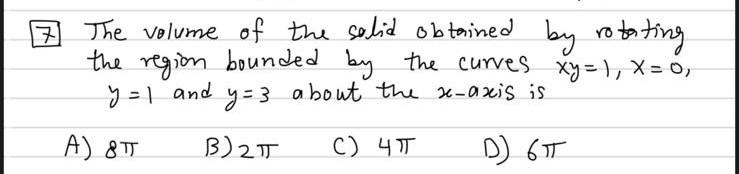 7 The volume of the solid obtained by rotating
the region bounded by the curves xy=1, x=0,
y=1 and y=3 about the x-axis is
A) 8π B) 2π C) 4π D) 6π